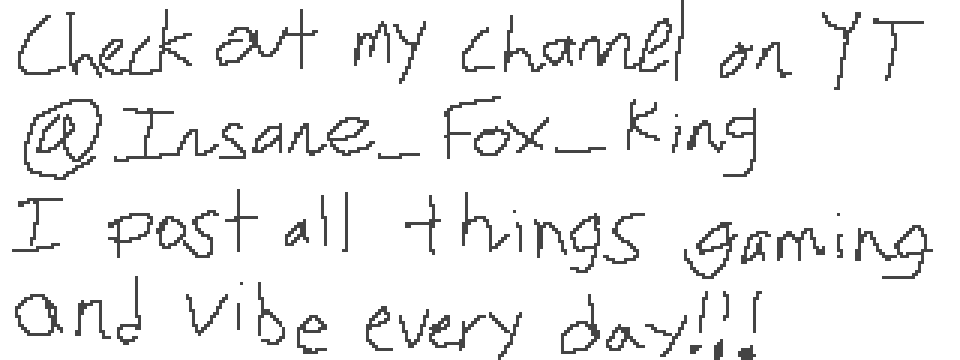 Check out my channel on YT
@Insane_Fox_King
I post all things gaming
and vibe every day!!!